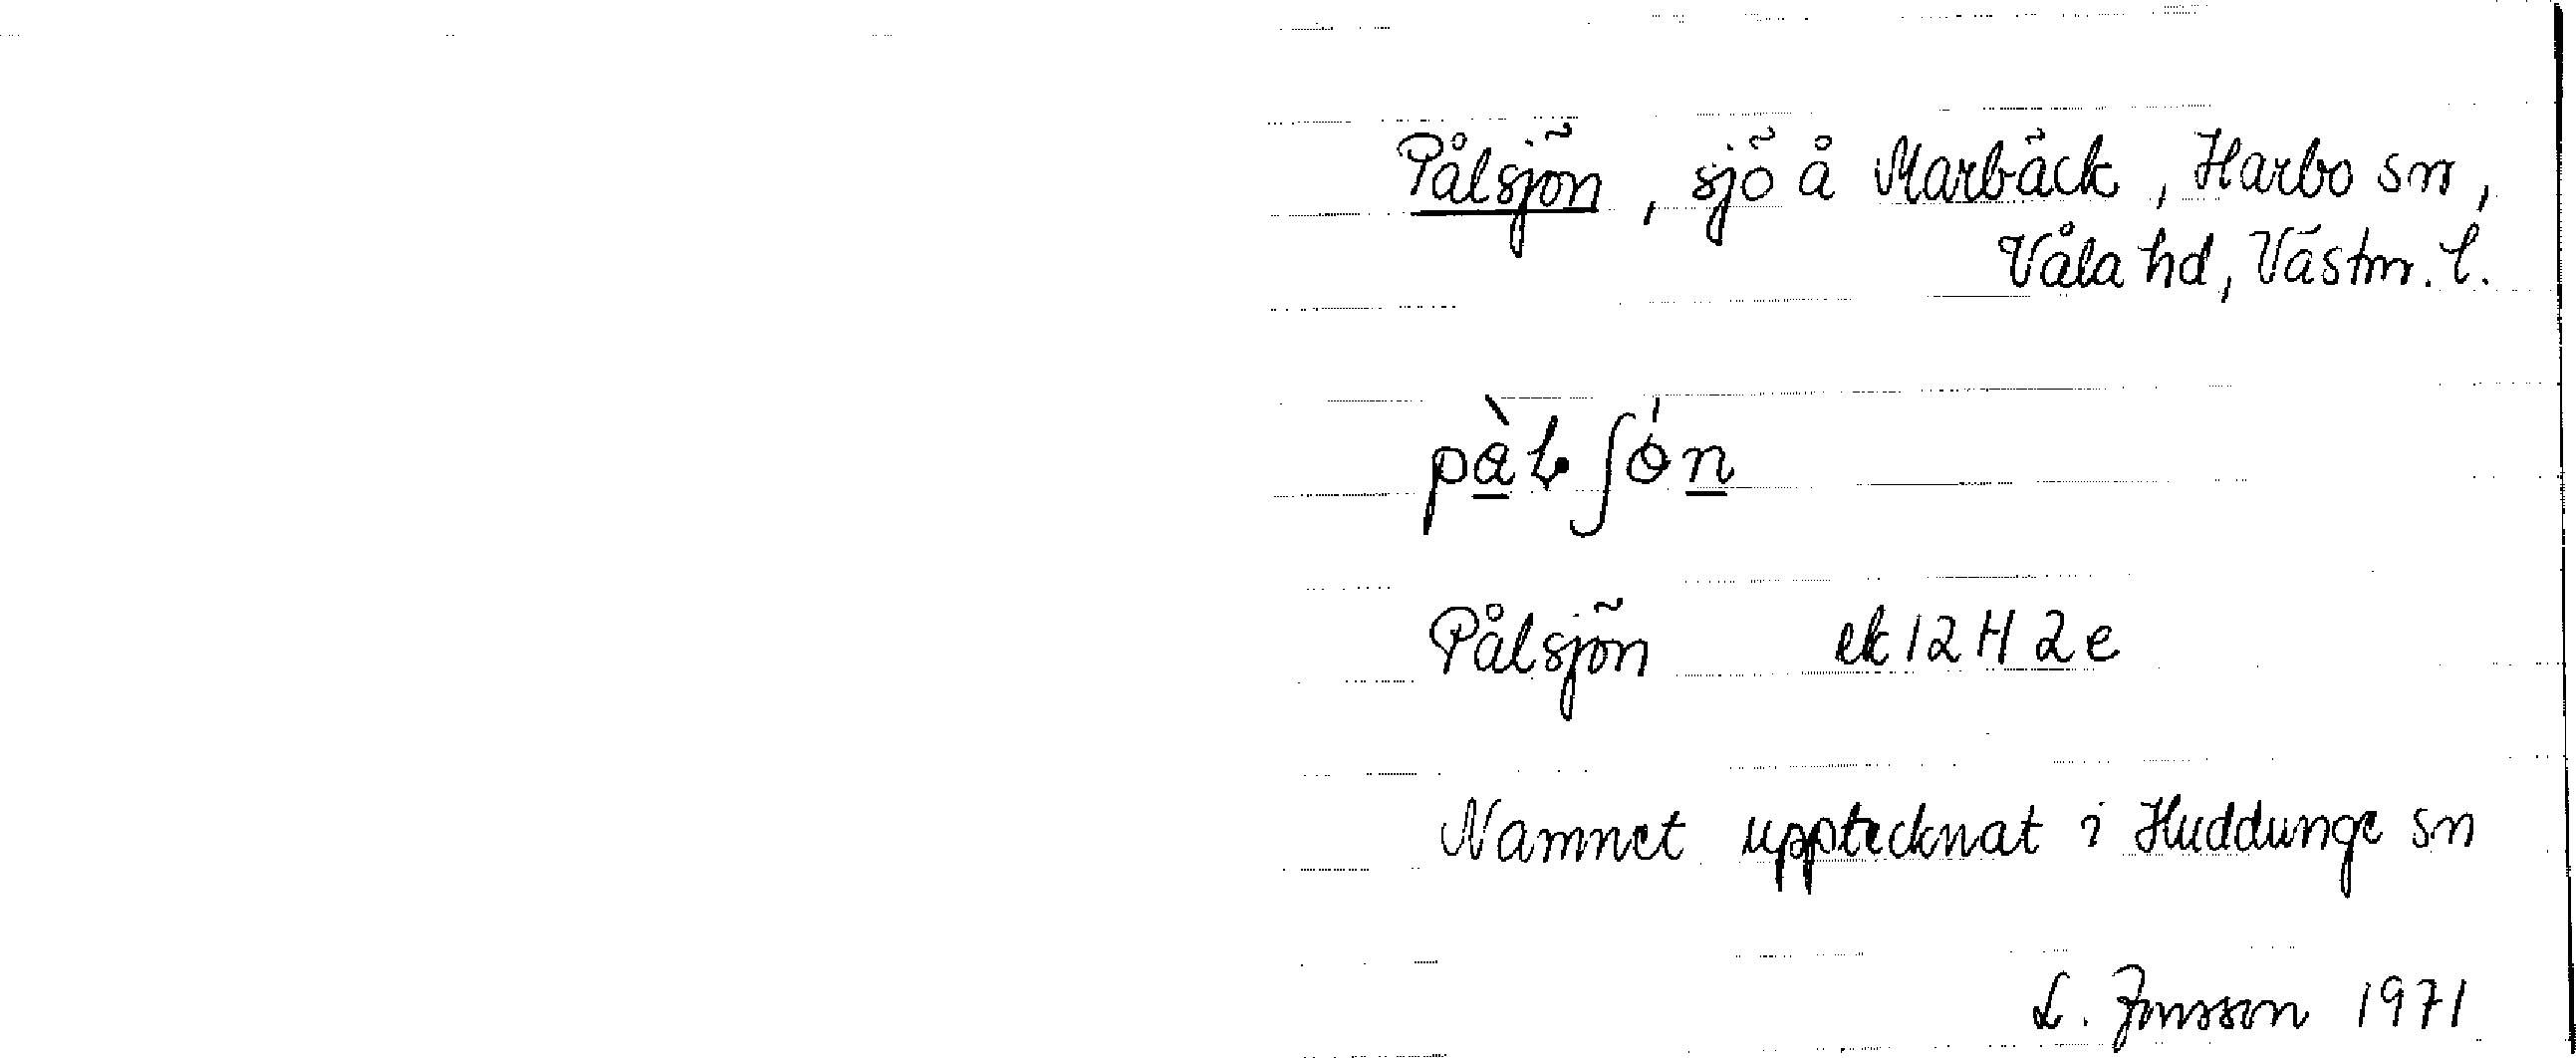 Pålsjön, sjö å Marbäck, Harbo sn,
Våla hd, Västm. l.
Pålsjön ek 12 H 2 e
Namnet upptecknat i Huddunge sn
L. Jonsson 1971